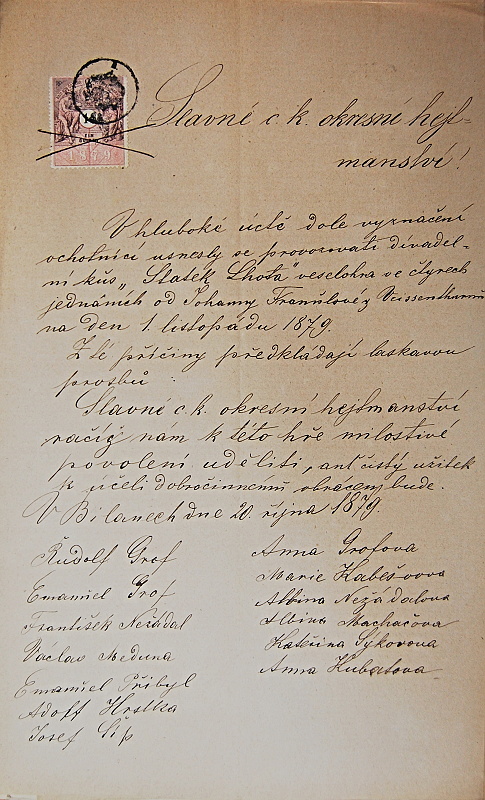 1879
Slavné c. k. okresní hejt-
manství!
V hluboké úctě dole vyznačení
ochotníci usnesly se provozovati divadel-
ní kus „Statek Lhota" veselohra ve čtyrech
jednáních od Johanny Franulové z Weissenthurnů
na den 1. listopadu 1879.
Z té příčiny předkládají laskavou
prosbu :
Slavné c. k. okresní hejtmanství
račiž nám k této hře milostivé
povolení uděliti, anť čistý užitek
k účeli dobročinnému obracen bude.
V Bílanech dne 20. října 1879.
Rudolf Grof
Emaniel Grof
František Nežádal
Václav Meduna
Emanuel Přibyl
Adolf Hrstka
Josef Šíp
Anna Grofova
Marie Kabešova
Albina Nežádalova
Albina Machačova
Kateřina Sýkorova
Anna Kubatova